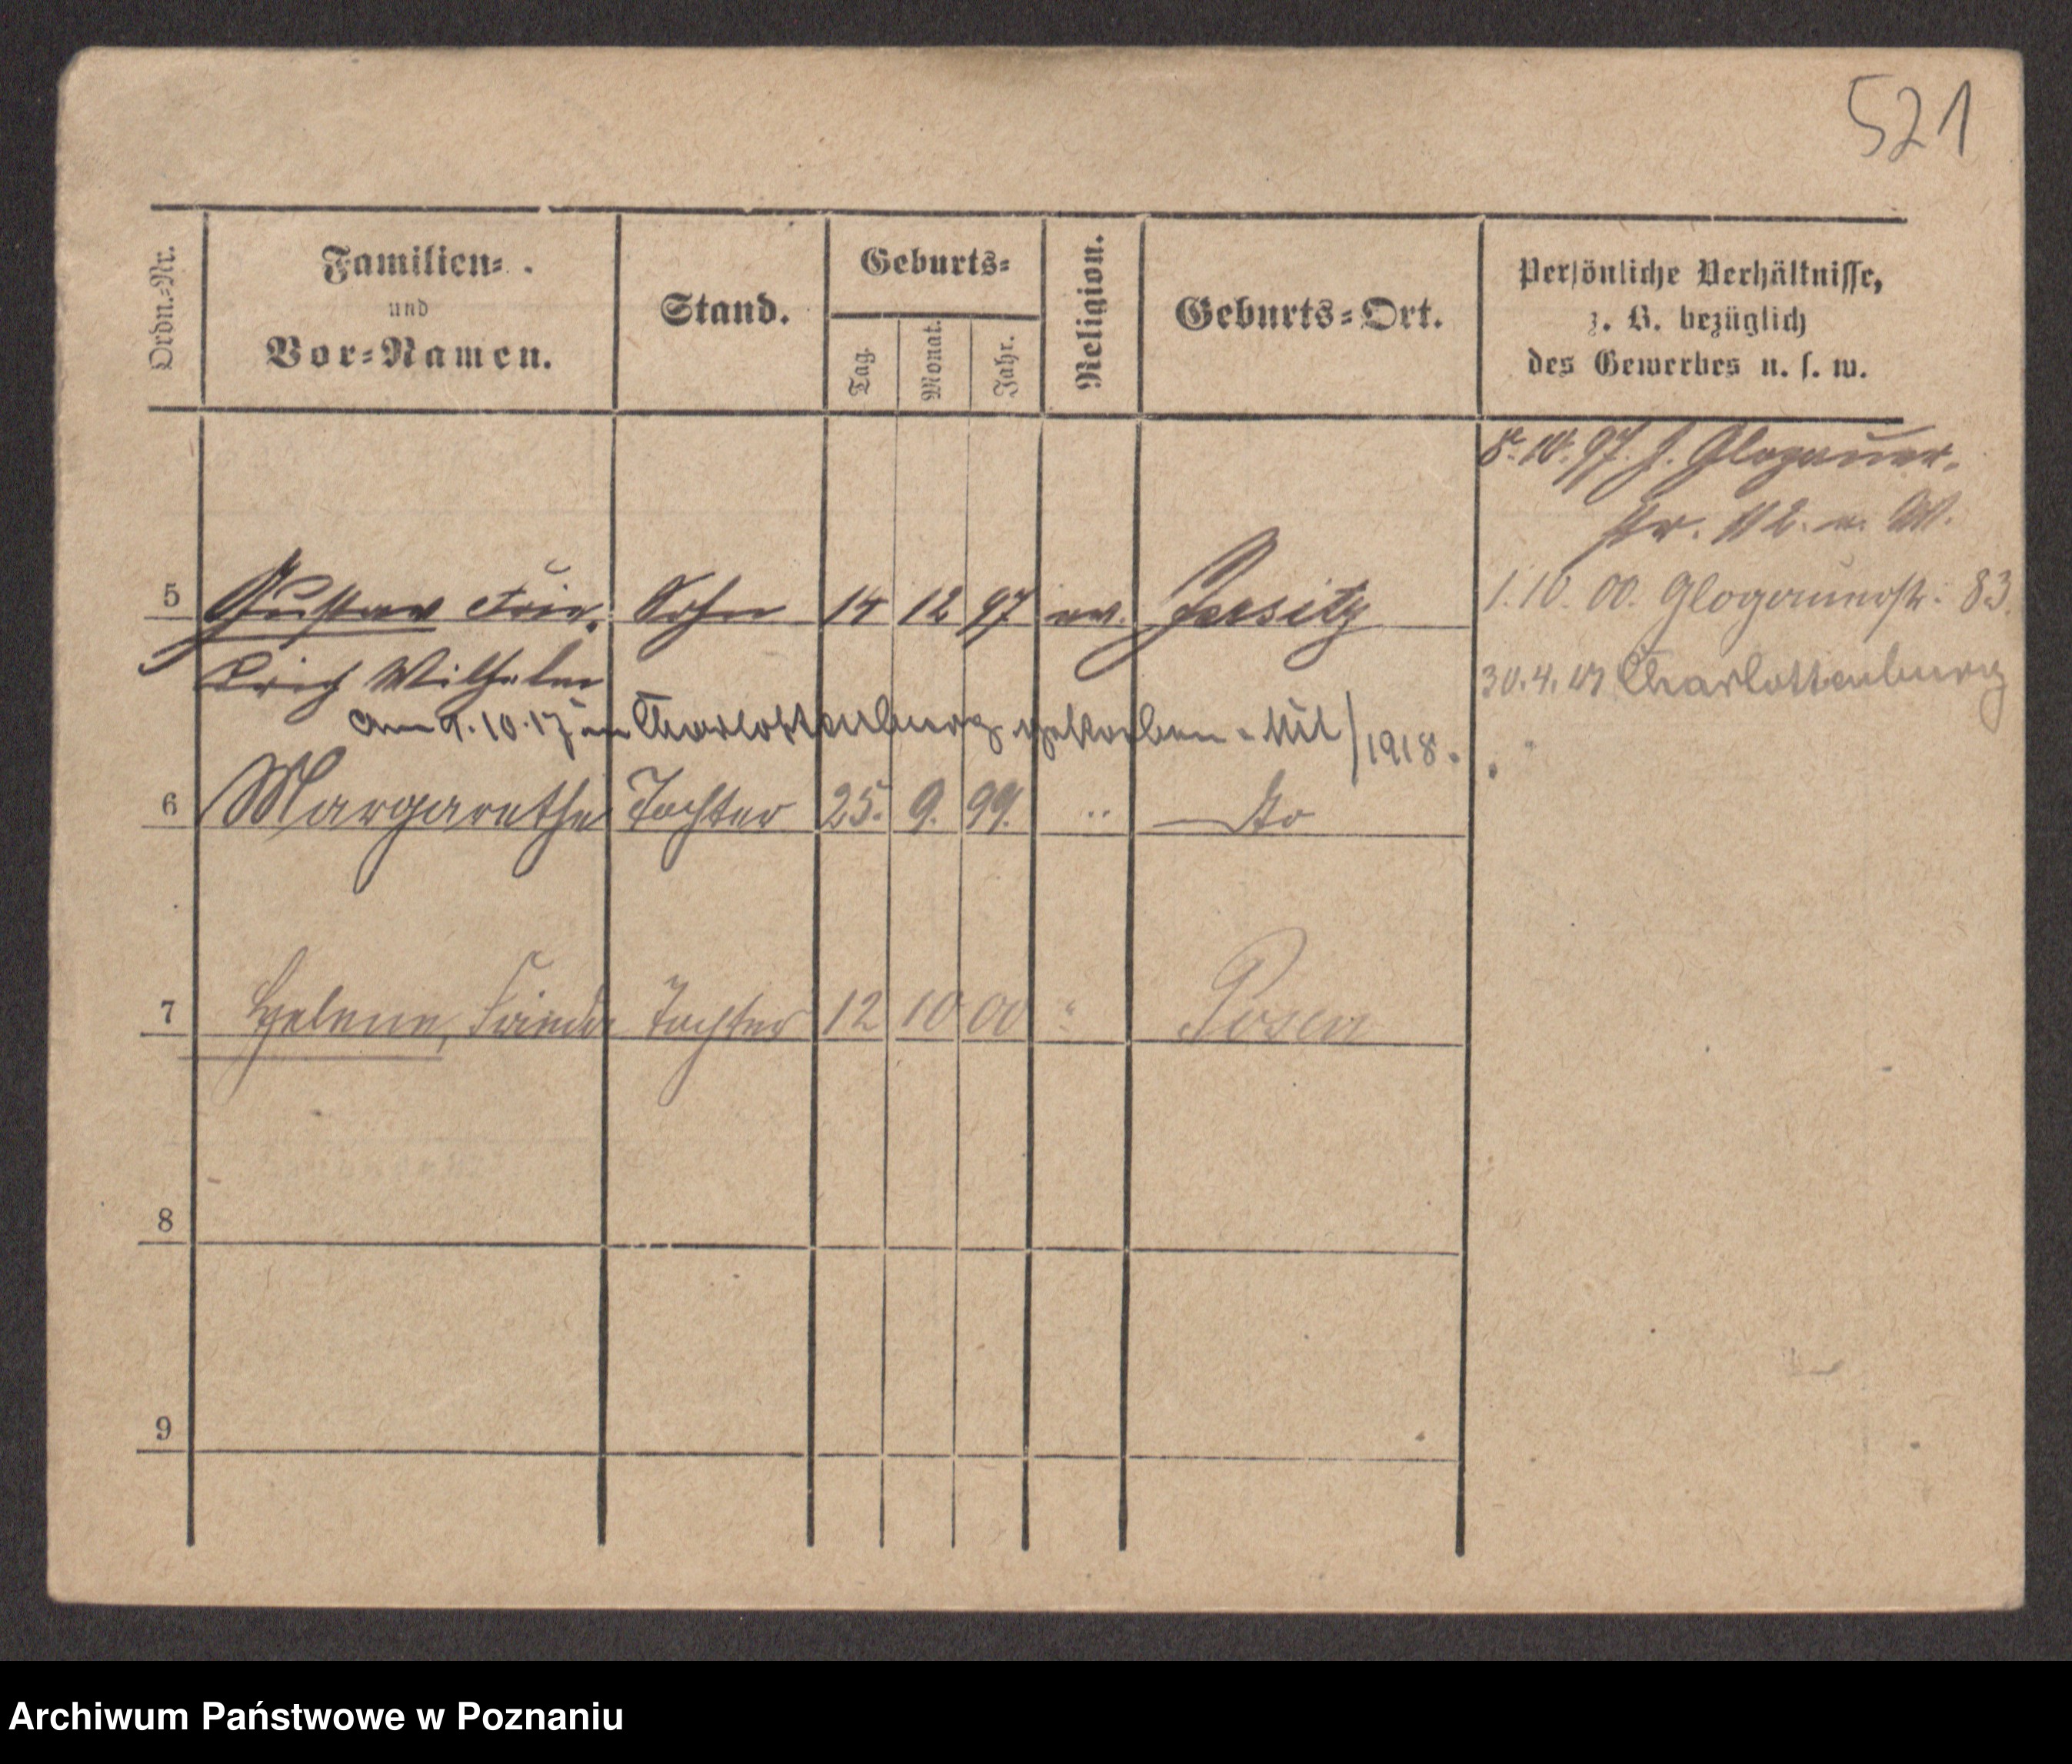 521
Ordn.-Nr.
Familien-
und
Vor-Namen.
Stand.
Geburts-
Tag.
Monat.
Jahr.
Religion.
Geburts-Ort.
Persönliche Verhältnisse,
z. B. bezüglich
des Gewerbes u. s. w.
8. 10. 97. J. Glogauer-
str. 112.
5 Gustav Frie- Sohn 14 12 97 ev. Jersitz
drich Wilhelm
1. 10. 00. Glogauerstr. 83.
30. 4. Charlottenburg
am 9.10.17 in Charlottenburg gestorben. 1918.
6 Margarethe Tochter 25. 9. 99. " do
7 Helene, Frieda Tochter 12 10 00 " Posen
8
9
Archiwum Państwowe w Poznaniu